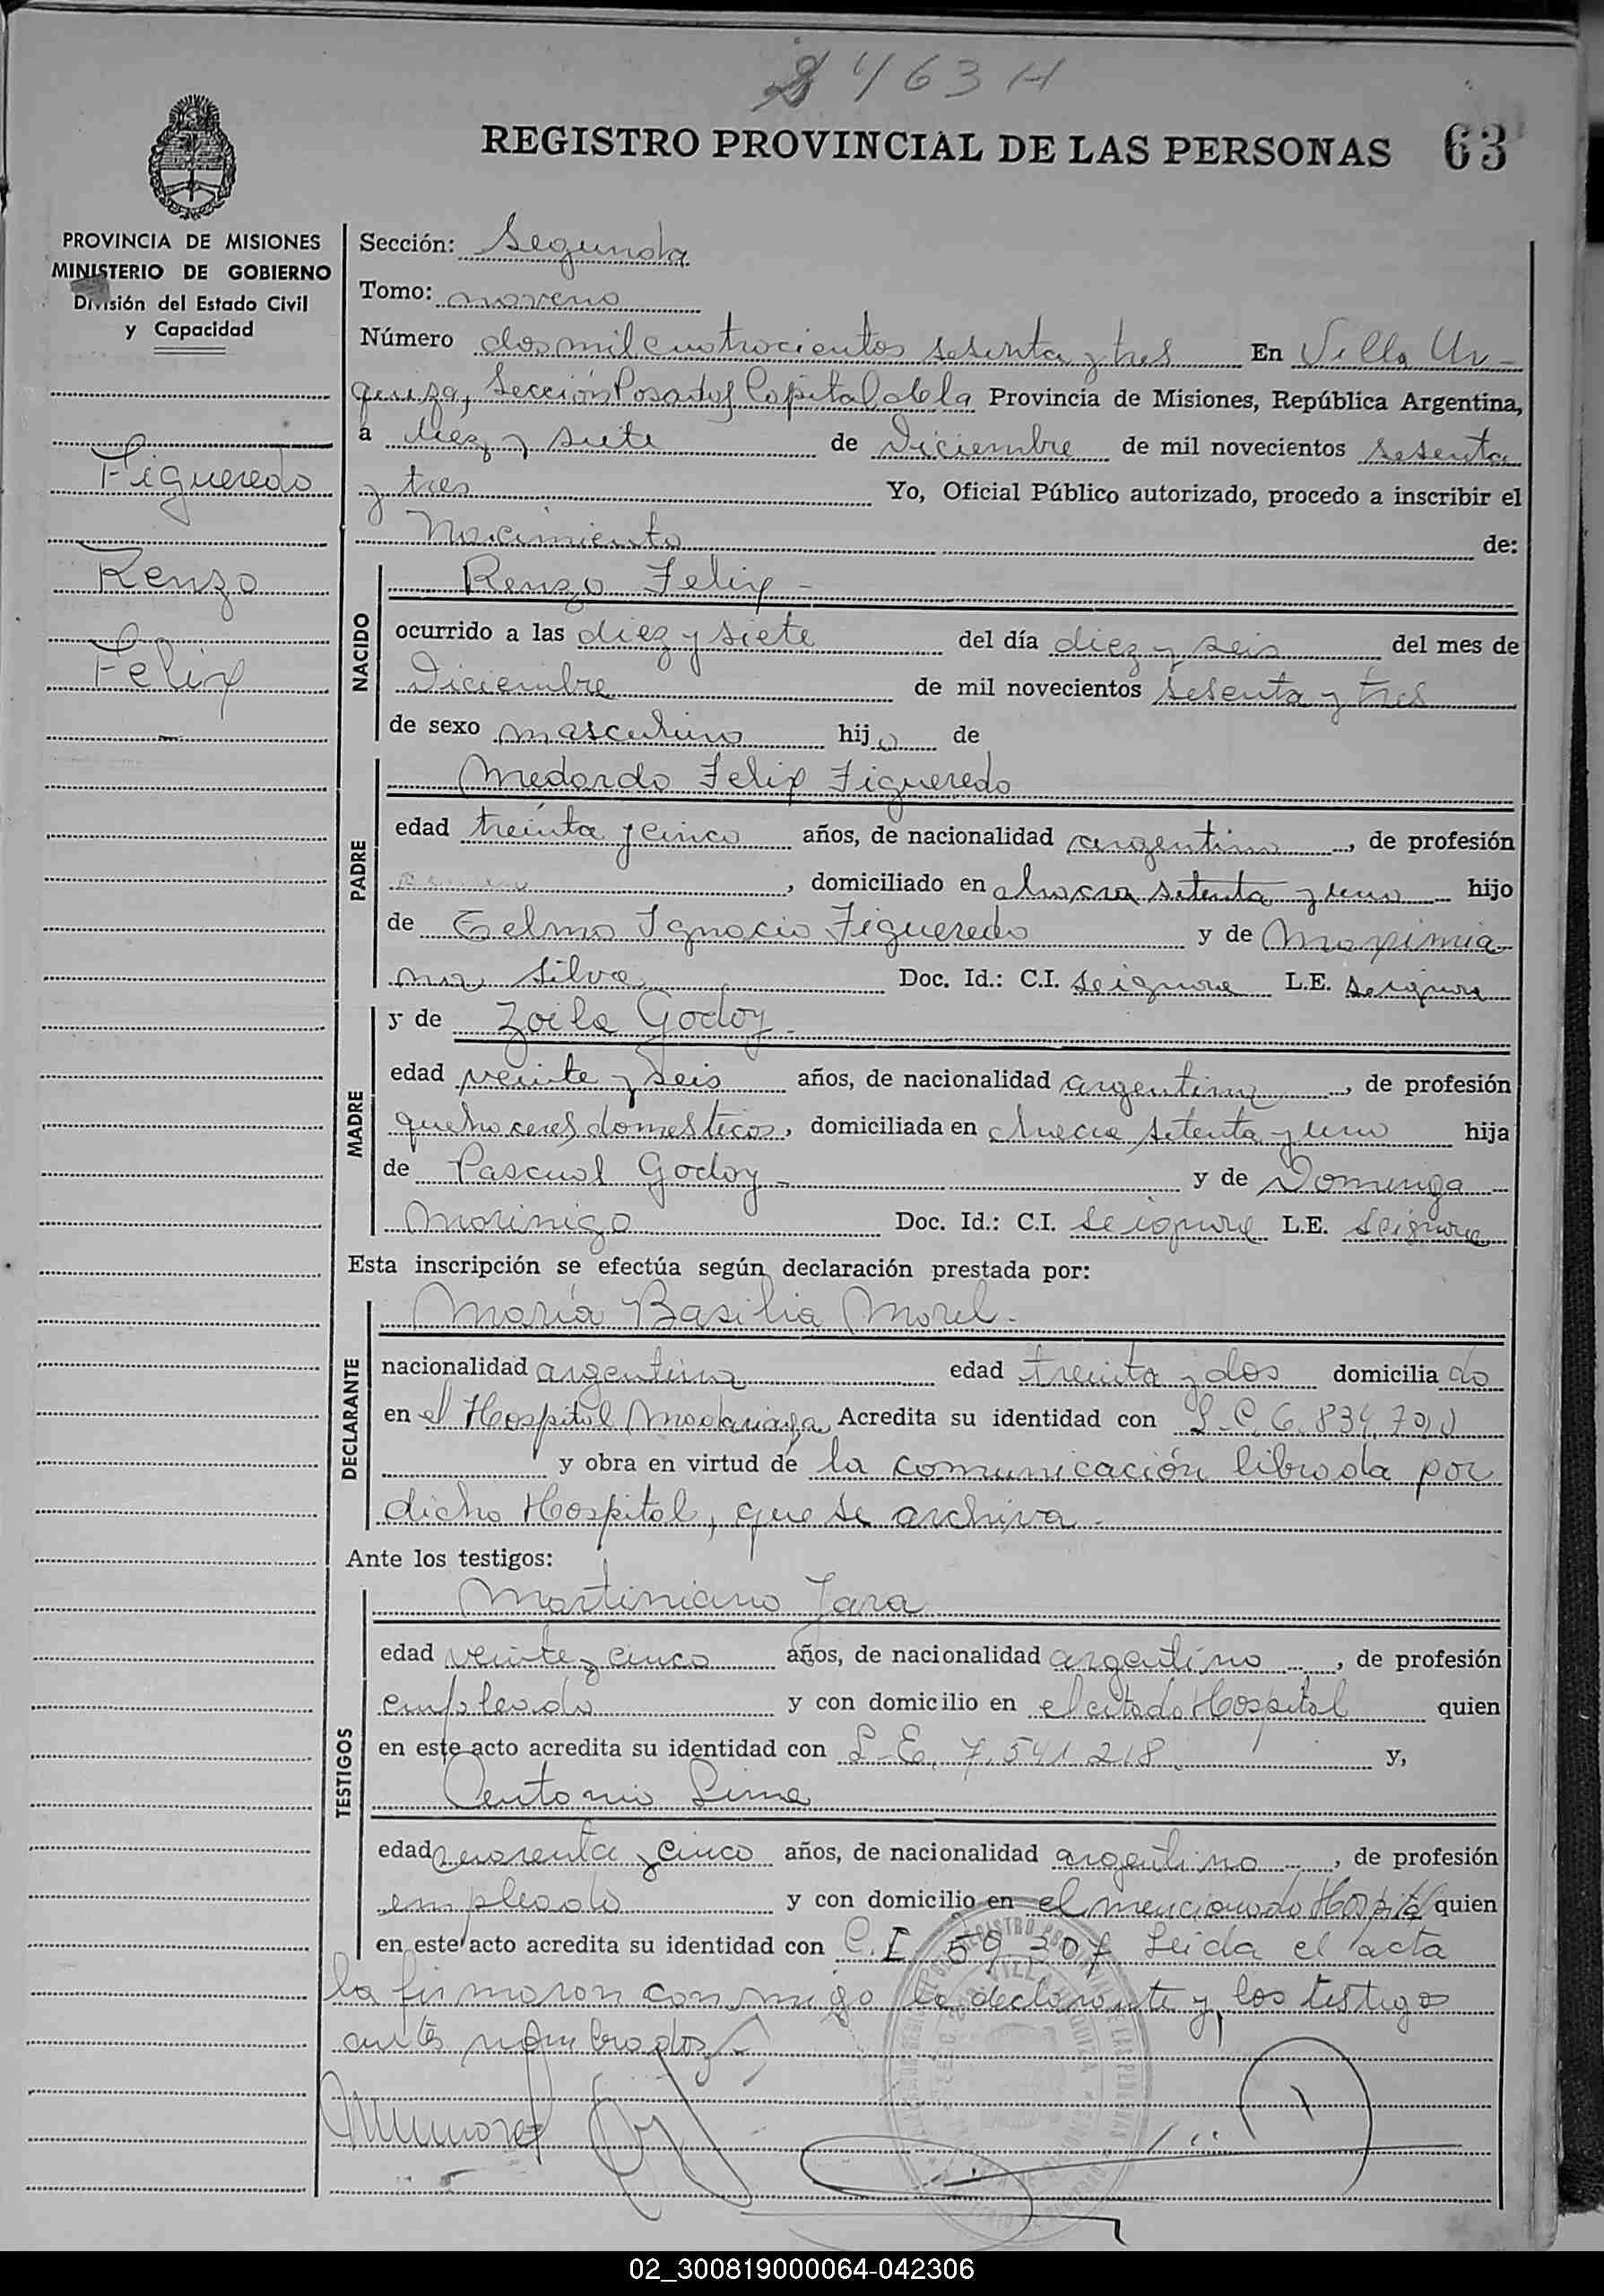 2463 H
REGISTRO PROVINCIAL DE LAS PERSONAS 63
PROVINCIA DE MISIONES
MINISTERIO DE GOBIERNO
División del Estado Civil
y Capacidad
Figueredo
Renzo
Felix
Sección: Segunda
Tomo: noveno
Número dos mil cuatrocientos sesenta y tres En Villa Ur-
quiza, Sección Posadas Capital de la Provincia de Misiones, República Argentina,
a diez y siete de Diciembre de mil novecientos sesenta
y tres Yo, Oficial Público autorizado, procedo a inscribir el
Nacimiento de:
NACIDO
Renzo Felix -
ocurrido a las diez y siete del día diez y seis del mes de
Diciembre de mil novecientos sesenta y tres
de sexo masculino hijo de
PADRE
Medardo Felix Figueredo
edad treinta y cinco años, de nacionalidad argentina, de profesión
, domiciliado en chacra setenta y uno hijo
de Telmo Ignacio Figueredo y de Maximia
na Silva Doc. Id.: C.I. se ignora L.E. se ignora
MADRE
y de Zoila Godoy -
edad veinte y seis años, de nacionalidad argentina, de profesión
quehaceres domesticos, domiciliada en chacra setenta y uno hija
de Pascual Godoy - y de Dominga
Morinigo Doc. Id.: C.I. se ignora L.E. se ignora
Esta inscripción se efectúa según declaración prestada por:
DECLARANTE
María Basilia Morel -
nacionalidad argentina edad treinta y dos domiciliado
en el Hospital Madariaga Acredita su identidad con L.C. 6.834.790
y obra en virtud de la comunicación librada por
dicho Hospital, que se archiva -
Ante los testigos:
TESTIGOS
Martiniano Jara
edad veinte y cinco años, de nacionalidad argentino, de profesión
empleado y con domicilio en el citado Hospital quien
en este acto acredita su identidad con L.E. 7.541.218 y,
Antonio Lima
edad cuarenta y cinco años, de nacionalidad argentino, de profesión
empleado y con domicilio en el mencionado Hospital quien
en este acto acredita su identidad con C.I. 59.307 Leida el acta
la firmaron conmigo la declarante y los testigos
antes nombrados
02_300819000064-042306